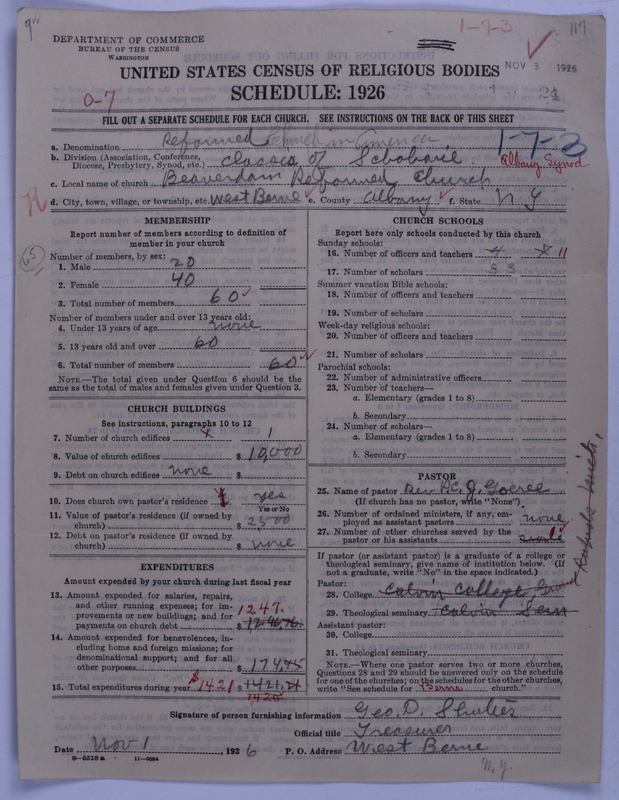 9"
1-7-3
117
DEPARTMENT OF COMMERCE
BUREAU OF THE CENSUS
WASHINGTON
UNITED STATES CENSUS OF RELIGIOUS BODIES
NOV 3 1926
SCHEDULE: 1926
0-7
24
FILL OUT A SEPARATE SCHEDULE FOR EACH CHURCH. SEE INSTRUCTIONS ON THE BACK OF THIS SHEET
a. Denomination Reformed Church in America
1-7-3
b. Division (Association, Conference, Diocese, Presbytery, Synod, etc.) Classes of Schoharie
Albany Synod
c. Local name of church Beaverdam Reformed Church
d. City, town, village, or township, etc. West Berne e. County Albany f. State N Y
R
65
MEMBERSHIP
Report number of members according to definition of
member in your church
Number of members, by sex:
1. Male 20
2. Female 40
3. Total number of members 60
Number of members under and over 13 years old:
4. Under 13 years of age none
5. 13 years old and over 60
6. Total number of members 60
NOTE.—The total given under Question 6 should be the
same as the total of males and females given under Question 3.
CHURCH BUILDINGS
See instructions, paragraphs 10 to 12
7. Number of church edifices x 1
8. Value of church edifices $ 10,000
9. Debt on church edifices none $
10. Does church own pastor's residence yes
Yes or No
11. Value of pastor's residence (if owned by
church) $ 2500
12. Debt on pastor's residence (if owned by
church) $ none
EXPENDITURES
Amount expended by your church during last fiscal year
13. Amount expended for salaries, repairs,
and other running expenses; for im-
provements or new buildings; and for
payments on church debt $ 1247.
14. Amount expended for benevolences, in-
cluding home and foreign missions; for
denominational support; and for all
other purposes $ 174.45
15. Total expenditures during year $1421 1421.21
1420
CHURCH SCHOOLS
Report here only schools conducted by this church
Sunday schools:
16. Number of officers and teachers 4 11
17. Number of scholars 33
Summer vacation Bible schools:
18. Number of officers and teachers
19. Number of scholars
Week-day religious schools:
20. Number of officers and teachers
21. Number of scholars
Parochial schools:
22. Number of administrative officers
23. Number of teachers—
a. Elementary (grades 1 to 8)
b. Secondary
24. Number of scholars—
a. Elementary (grades 1 to 8)
b. Secondary
PASTOR
25. Name of pastor Rev. A.C.J. Goeree
(If church has no pastor, write "None")
26. Number of ordained ministers, if any, em-
ployed as assistant pastors none
27. Number of other churches served by the
pastor or his assistants 1
If pastor (or assistant pastor) is a graduate of a college or
theological seminary, give name of institution below. (If
not a graduate, write "No" in the space indicated.)
Pastor:
28. College Calvin College Grand Rapids Mich.
29. Theological seminary Calvin Sem
Assistant pastor:
30. College
31. Theological seminary
NOTE.—Where one pastor serves two or more churches,
Questions 28 and 29 should be answered only on the schedule
for one of the churches; on the schedules for the other churches,
write "See schedule for Berne church."
Signature of person furnishing information Geo. D. Shultes
Official title Treasurer
Date Nov 1, 1926 P. O. Address West Berne
N.Y.
8—5518 a 11—9064